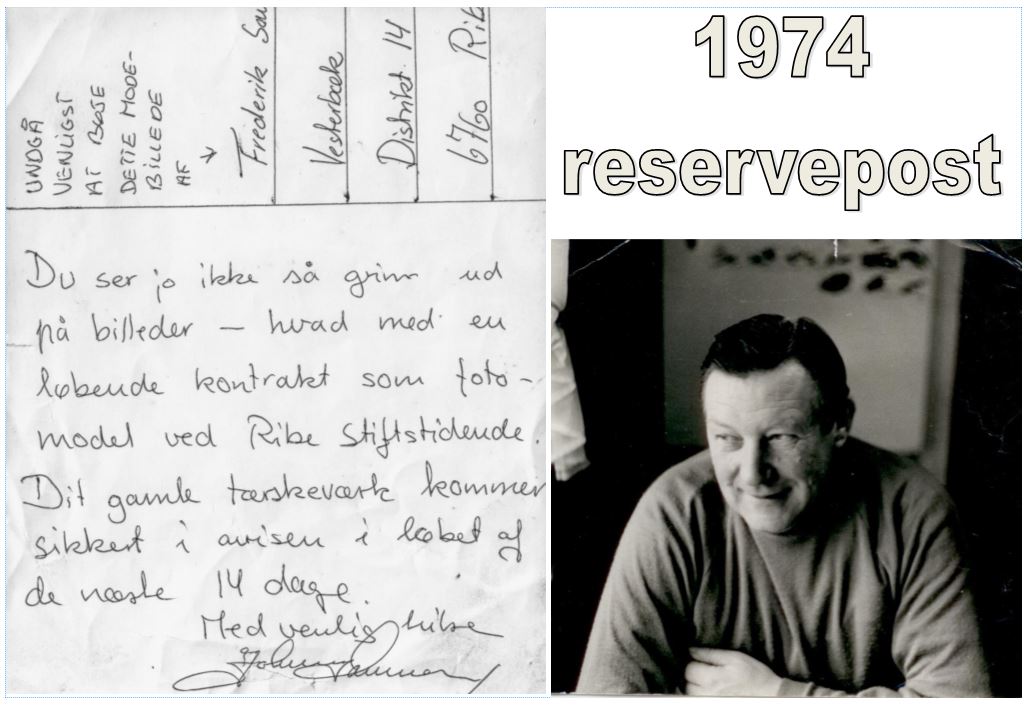 UNDGÅ
VENLIGST
AT BØJE
DETTE MODE-
BILLEDE
AF
Frederik
Vesterbæk
Distrikt 14
6760 Rib
Du ser jo ikke så grim ud
på billeder – hvad med en
løbende kontrakt som foto-
model ved Ribe Stiftstidende.
Dit gamle tærskeværk kommer
sikkert i avisen i løbet af
de næste 14 dage.
Med venlig hilsen
1974
reservepost